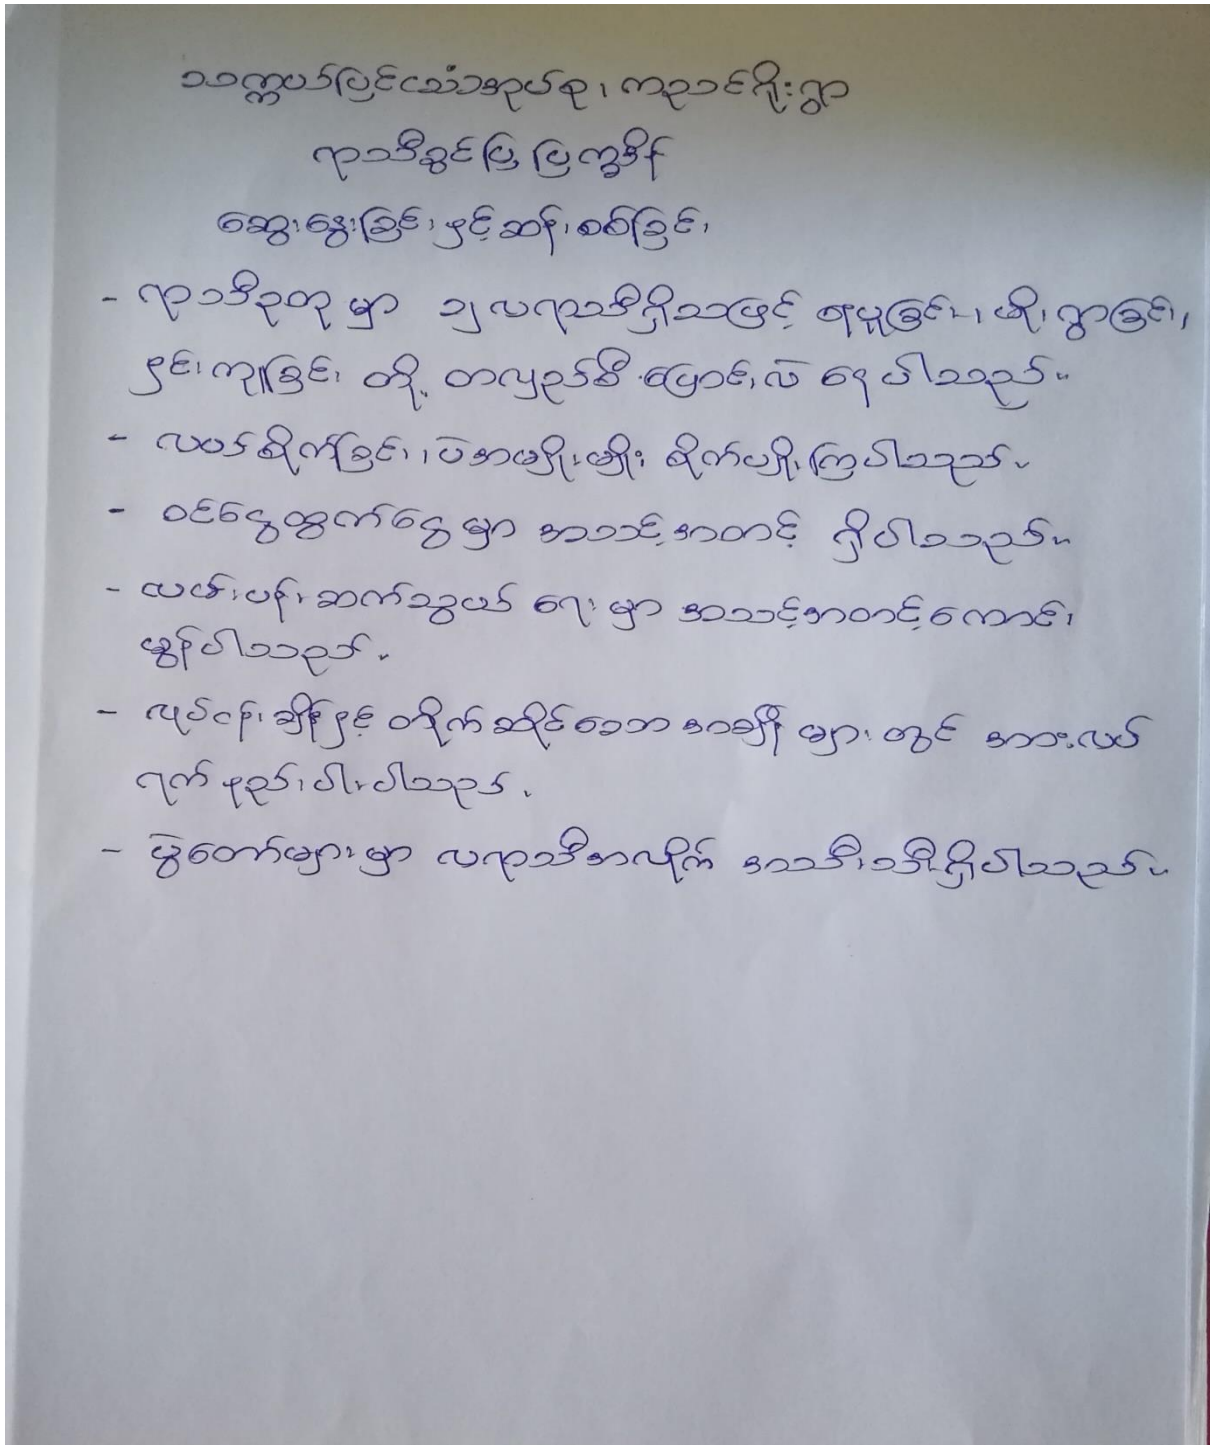 သက္ကယ်ပြင်သံအုပ်စု၊ ကညင်ဂိုးရွာ
ရာသီခွင်ပြ ပြက္ခဒိန်
ဆွေးနွေးခြင်းနှင့်ဆန်းစစ်ခြင်း
- ရာသီဥတုမှာ ၁၂ လရာသီရှိသဖြင့် နေပူခြင်း၊ မိုးရွာခြင်း၊
နှင်းကျခြင်း တို့ တလှည့်စီ ပြောင်းလဲ နေပါသည်။
- လယ်စိုက်ခြင်း၊ ပဲအမျိုးမျိုး စိုက်ပျိုးကြပါသည်။
- ဝင်ငွေထွက်ငွေမှာ အသင့်အတင့် ရှိပါသည်။
- လမ်းပန်းဆက်သွယ်ရေးမှာ အသင့်အတင့်ကောင်း
မွန်ပါသည်။
- လုပ်ငန်းချိန်နှင့် တိုက်ဆိုင်သော အချိန်များတွင် အားလပ်
ရက်နည်းပါးပါသည်။
- ပွဲတော်များမှာ လရာသီအလိုက် အသီးသီးရှိပါသည်။